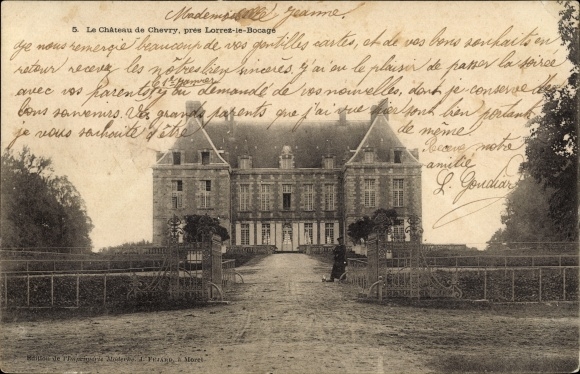 Mademoiselle Jeanne.
5. Le Château de Chevry, près Lorrez-le-Bocage
Je vous remercie beaucoup de vos gentilles cartes, et de vos bons souhaits en
retour recevez les nôtres bien sincères. J'ai eu le plaisir de passer la soirée
du 1er janvier
avec vos parents j'y ai demandé de vos nouvelles, dont je conserve de
bons souvenirs. Vos grands parents que j'ai vue hier sont bien portants
je vous souhaite d'être de même.
Recevez notre
amitié
L.
Edition de l'Imprimerie Moderne, J. Pujard, à Moret